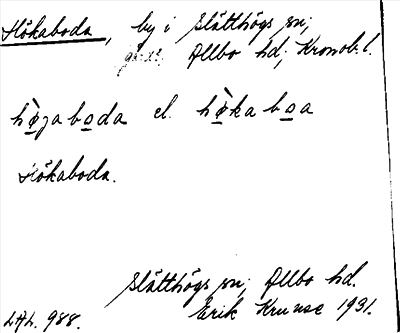 Hökaboda, by i Slätthögs sn;
Allbo hd; Kronob. l.
hø̀ʒabo̲da el. hø̀kabo̲a
Hökaboda.
Slätthögs sn; Allbo hd.
LAL. 988. Erik Kruuse 1931.